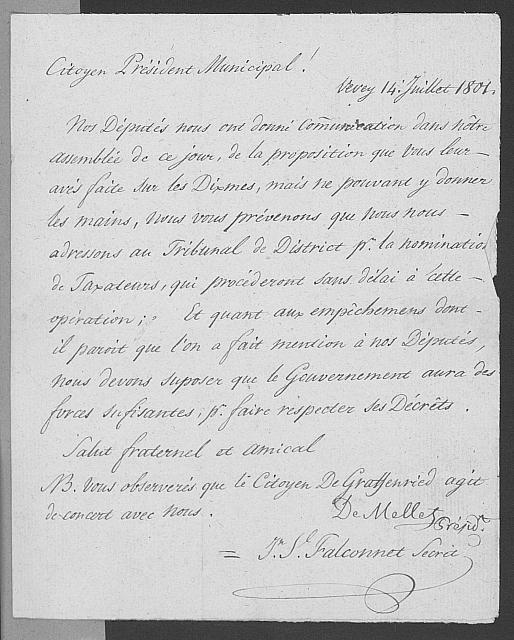 Citoyen Président Municipal!
Vevey 14. Juillet 1801.
Nos Députés nous ont donné Com̄unication dans nôtre
assemblée de ce jour, de la proposition que vous leur
avés faite sur les Dixmes, mais ne pouvant y donner
les mains, Nous vous prévenons que Nous nous
adressons au Tribunal de District pr. la nomination
de Taxateurs, qui procéderont sans délai à cette
opération; Et quant aux empêchemens dont
il paroit que l'on a fait mention à nos Députés,
nous devons suposer que le Gouvernement aura des
forces sufisantes, pr. faire respecter ses Décrêts.
Salut fraternel et amical
NB. Vous observerés que le Citoyen De Graffenried agit
de concert avec Nous.
De Mellet Présidt.
= Jn. Sl. Falconnet Secrét